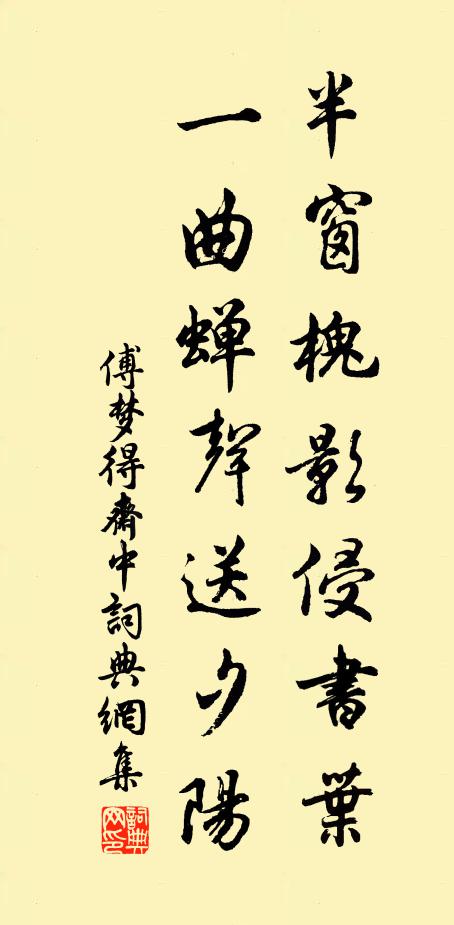 半窗槐影侵書葉
一曲蝉聲送夕陽
傅梦得齋中詞典網集
詞典网印